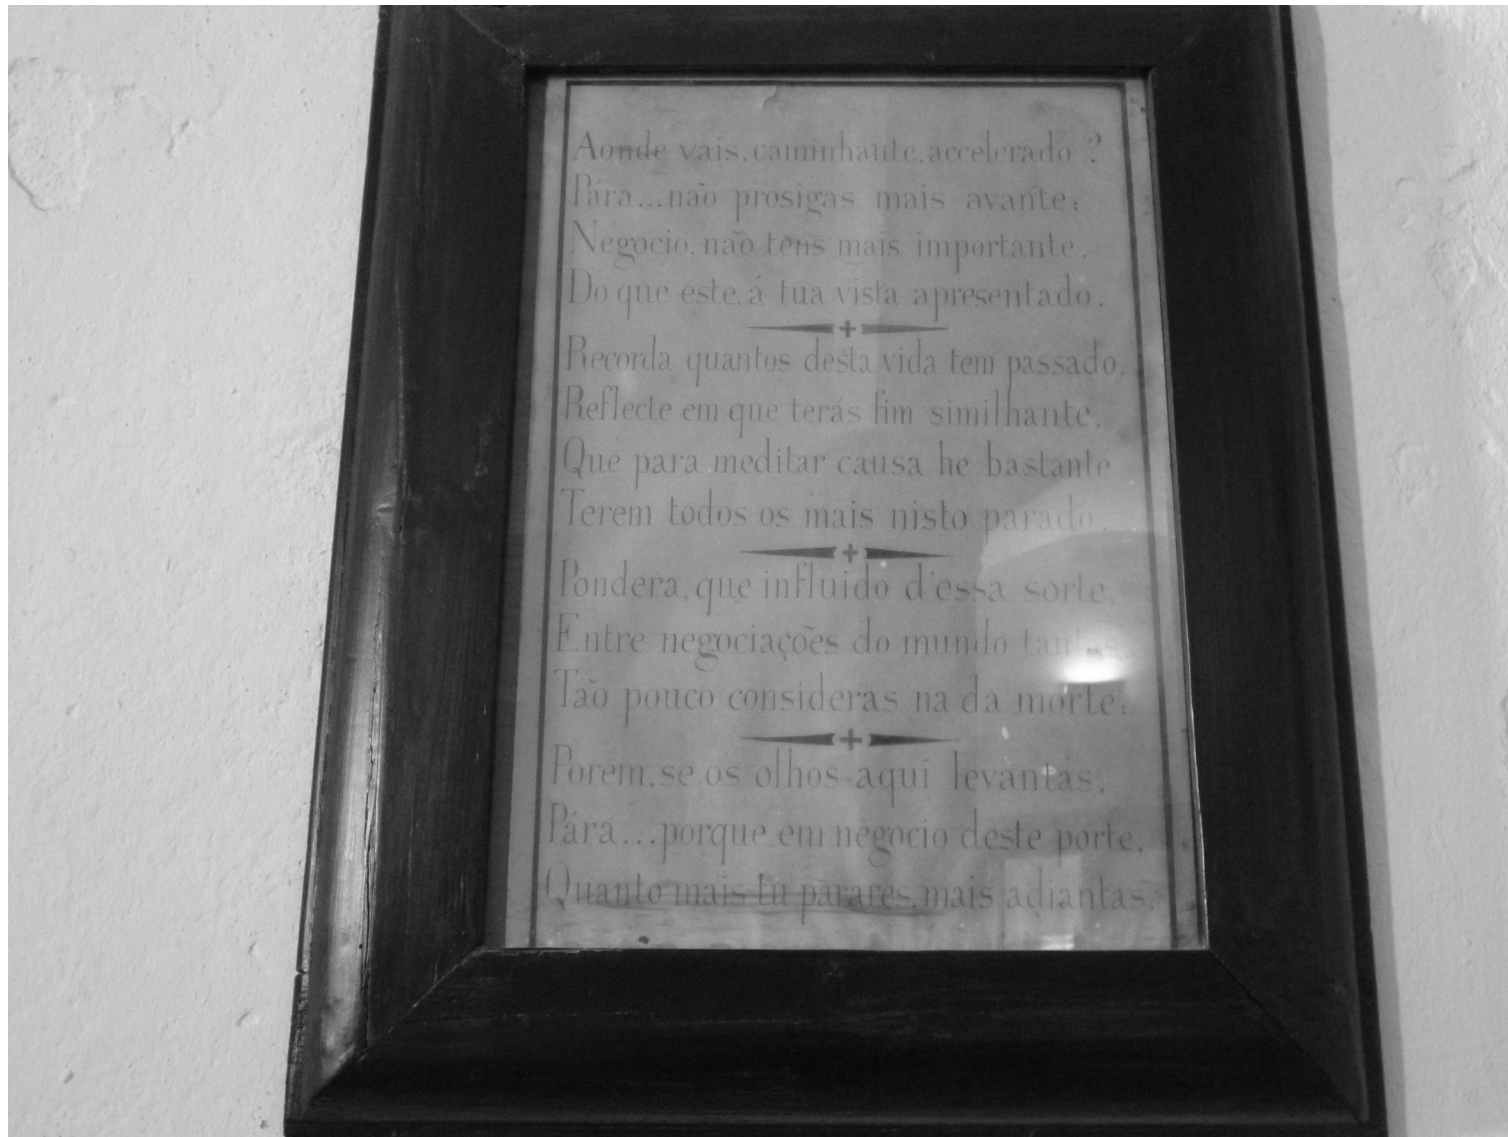 Aonde vais, caminhante, accelerado ?
Pára...não prosigas mais avante:
Negocio, não tens mais importante,
Do que este, á tua vista apresentado.
Recorda quantos desta vida tem passado,
Reflecte em que terás fim similhante,
Que para meditar causa he bastante
Terem todos os mais nisto parado.
Pondera, que influido d'essa sorte,
Entre negociações do mundo tantas,
Tão pouco consideras na da morte:
Porem, se os olhos aqui levantas,
Pára...porque em negocio deste porte,
Quanto mais tu parares, mais adiantas.